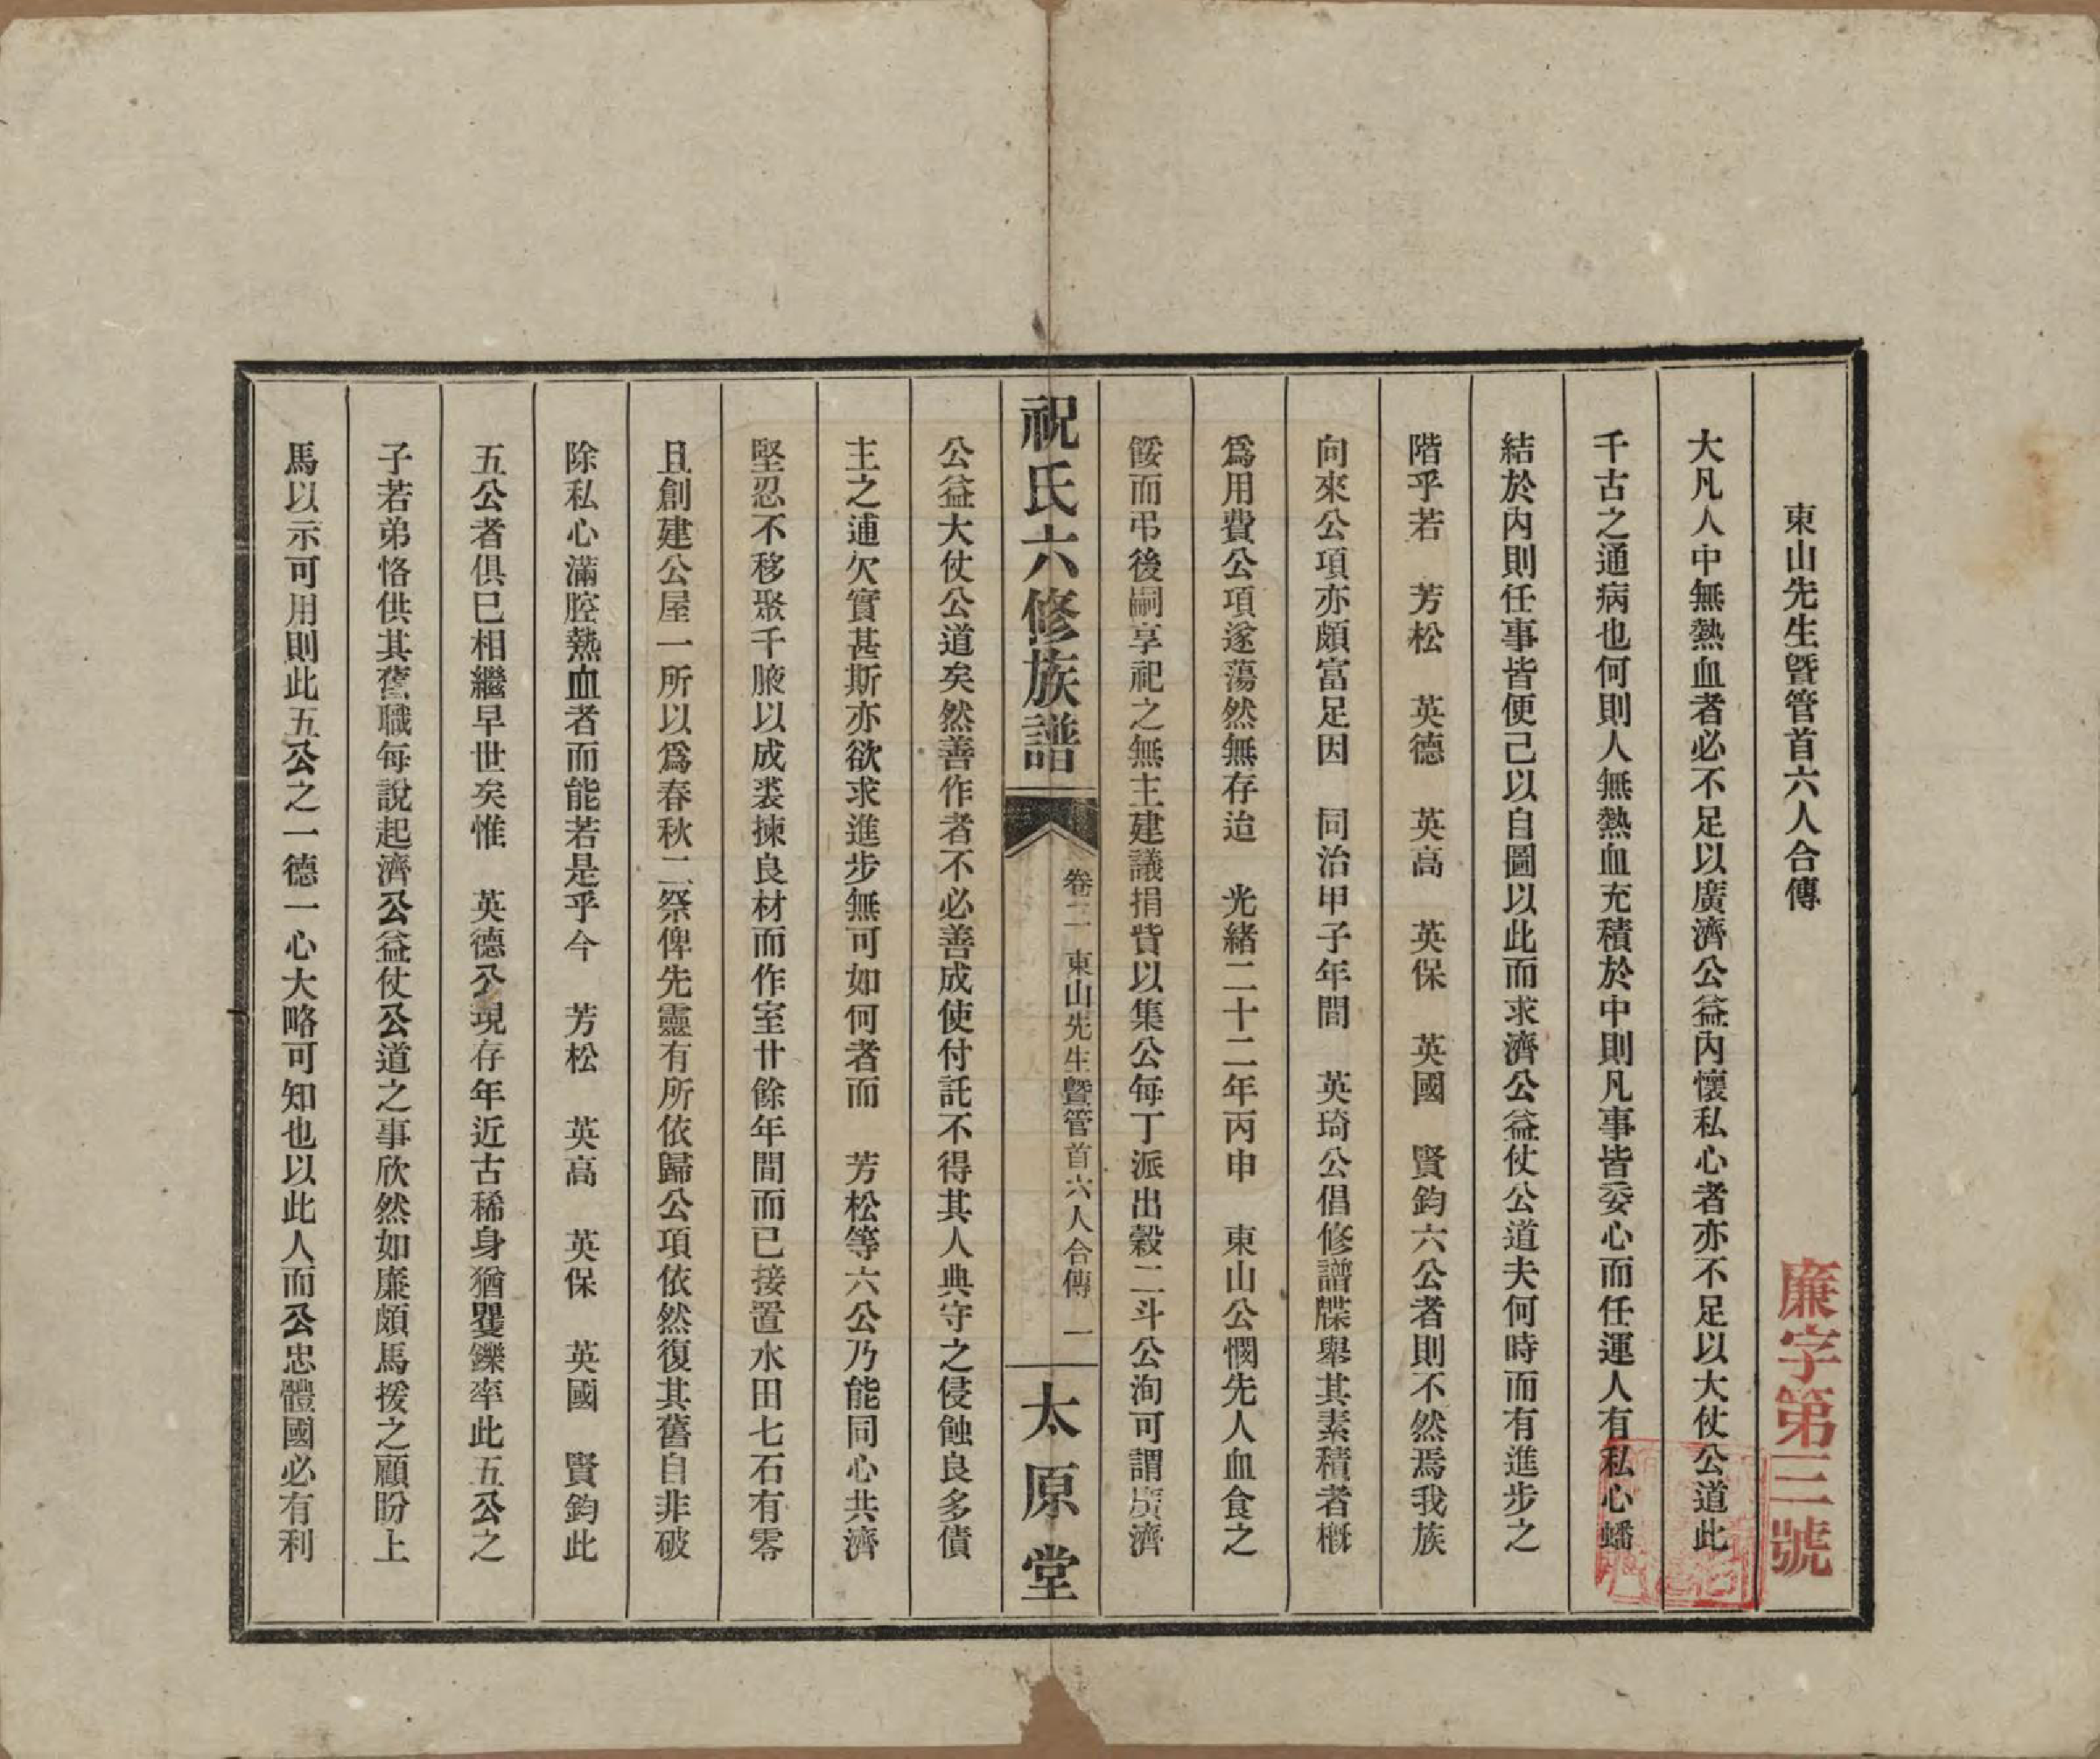 東山先生曁管首六人合傳
廉字第三號
大凡人中無熱血者必不足以廣濟公益內懷私心者亦不足以大仗公道此
千古之通病也何則人無熱血充積於中則凡事皆委心而任運人有私心蟠
結於內則任事皆便己以自圖以此而求濟公益仗公道夫何時而有進步之
階乎若　芳松　英德　英高　英保　英國　賢鈞六公者則不然焉我族
向來公項亦頗富足因　同治甲子年間　英琦公倡修譜牒舉其素積者槪
爲用費公項遂蕩然無存迨　光緒二十二年丙申　東山公憫先人血食之
餒而弔後嗣享祀之無主建議捐貲以集公每丁派出穀二斗公洵可謂廣濟
祝氏六修族譜
卷二　東山先生曁管首六人合傳　一
太原堂
公益大仗公道矣然善作者不必善成使付託不得其人典守之侵蝕良多債
主之逋欠實甚斯亦欲求進步無可如何者而　芳松等六公乃能同心共濟
堅忍不移聚千腋以成裘揀良材而作室廿餘年間而已接置水田七石有零
且創建公屋一所以爲春秋二祭俾先靈有所依歸公項依然復其舊自非破
除私心滿腔熱血者而能若是乎今　芳松　英高　英保　英國　賢鈞此
五公者俱巳相繼早世矣惟　英德公現存年近古稀身猶矍鑠率此五公之
子若弟恪供其舊職每說起濟公益仗公道之事欣然如廉頗馬援之顧盼上
馬以示可用則此五公之一德一心大略可知也以此人而公忠體國必有利